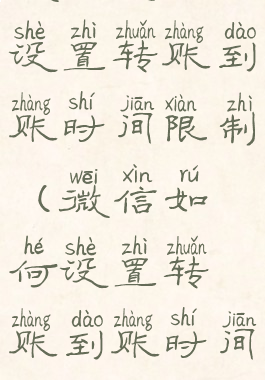 shè zhì zhuǎn zhàng dào
设置转账到
zhàng shí jiān xiàn zhì
账时间限制
wēi xìn rú
（微信如
hé shè zhì zhuǎn
何设置转
zhàng dào zhàng shí jiān
账到账时间